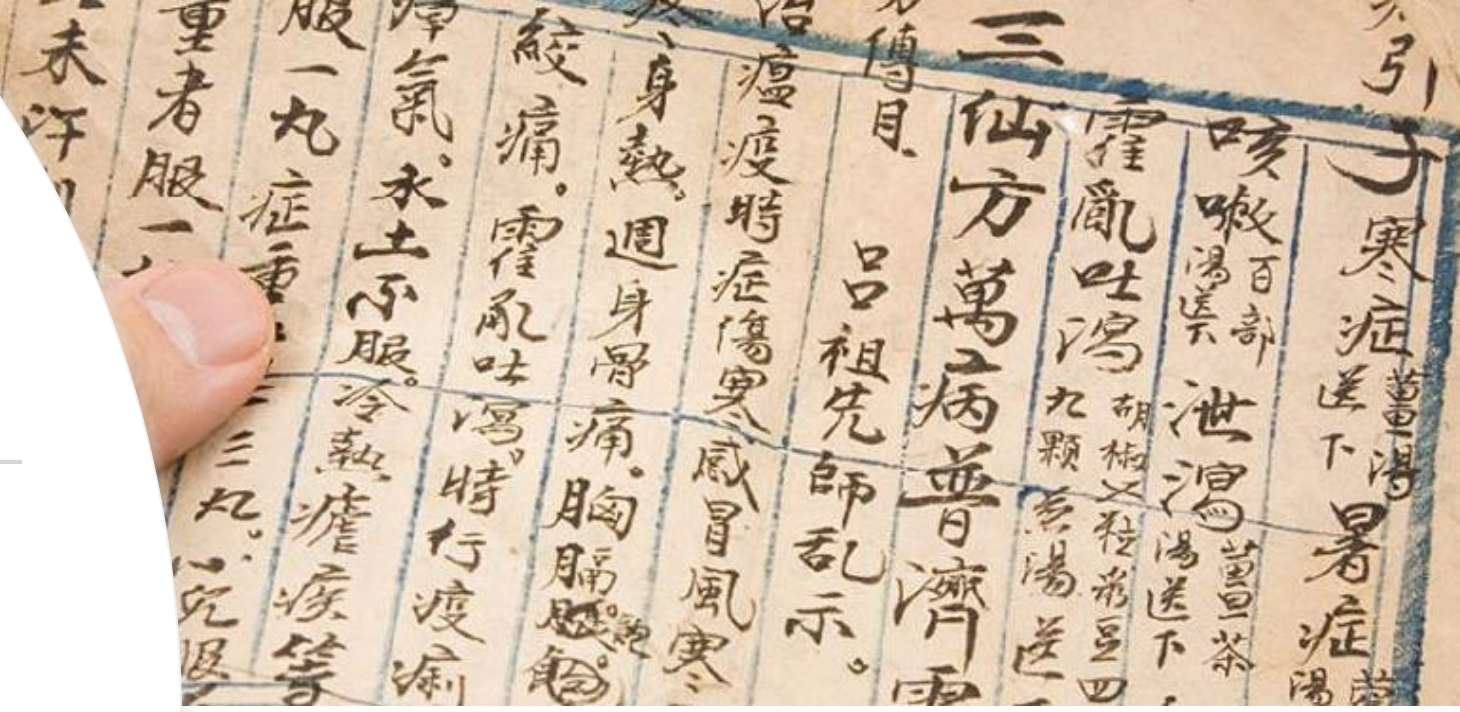 引
子 寒症 薑湯送下 暑症
咳嗽 百部湯送下 泄瀉 薑茶湯送下
霍亂吐瀉 胡椒九顆 粒 豆四 湯送
三 仙方萬病普濟
方傳目
呂祖先師乩示。
治瘟疫時症傷寒感冒風寒
身熱。週身骨痛。胸膈
絞痛。霍乱吐瀉。時行疫痢
瘴氣。水土不服。冷熱瘧疾等
服一丸症重
重者服一 三丸。小兒服
未